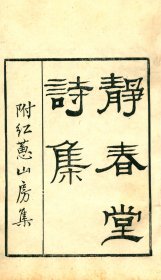 靜春堂
詩集
附紅蕙山房集